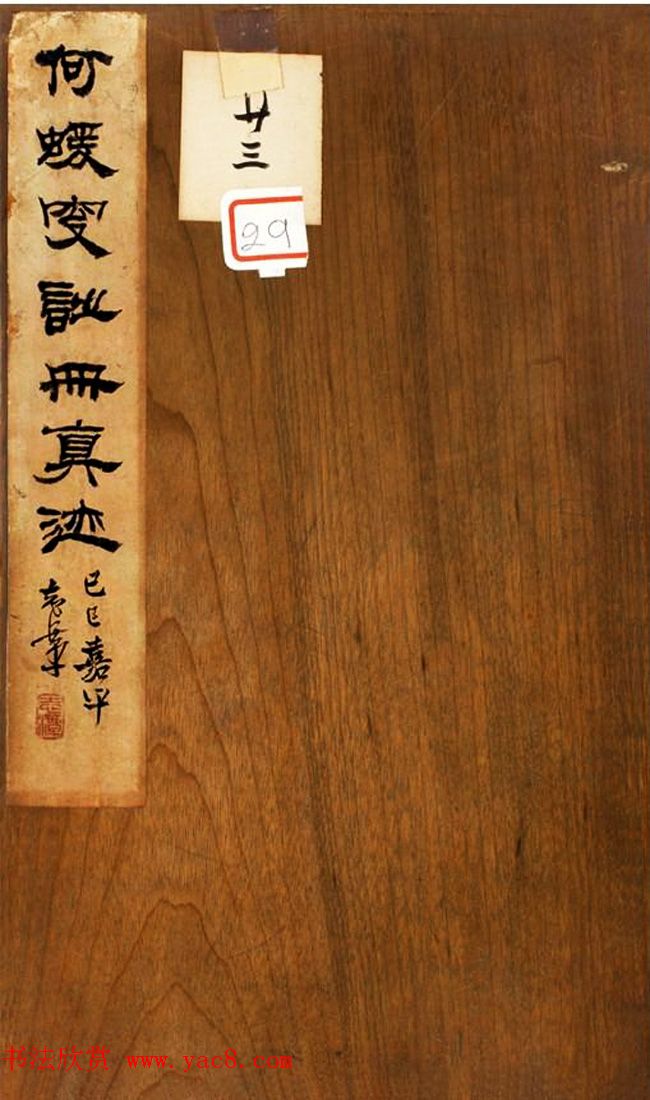 何蝯叟詩冊真迹
己巳嘉平
廿三
29
书法欣赏 www.yac8.com